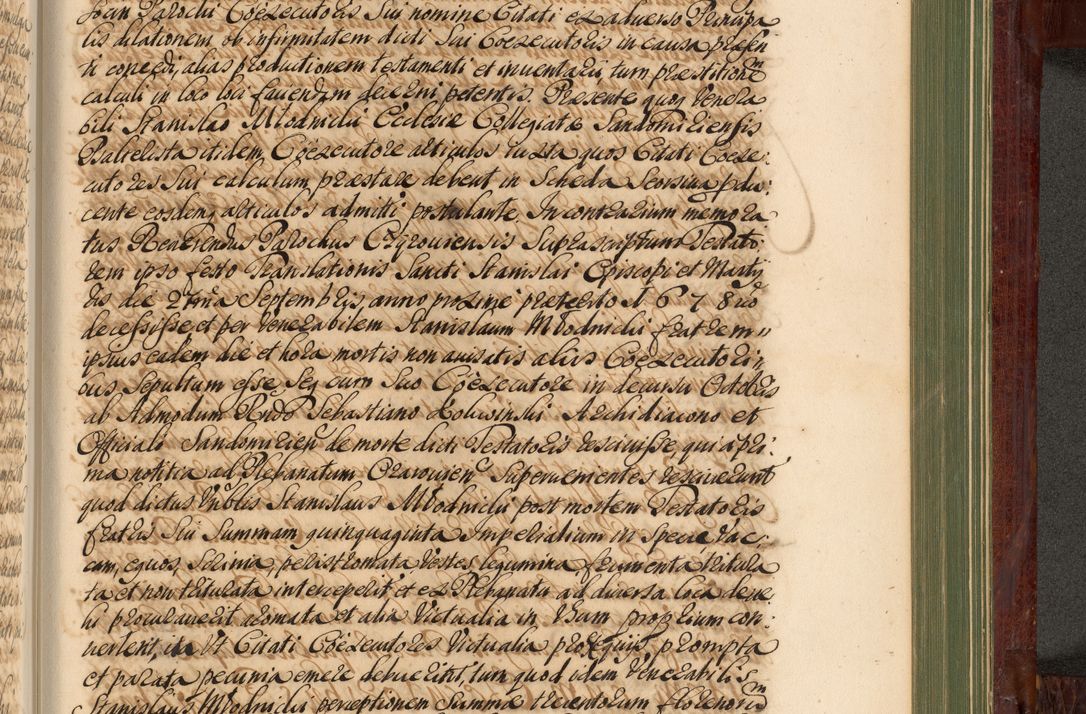 Joan Parochi Coexecutoris Sui nomine Citati ex adverso Principa
lis dilationem ob infirmitatem dicti Sui Coexecutoris in causa præsen
ti concedi, alias productionem testamenti et inventarii, tum præstitionem
calculi in loco loci favendum decerni petentis. Præsente quoq Venera
bili Stanislao Młodnicki Ecclesiæ Collegiatæ Sandomiriensis
Psalterista itidem Coexecutore articulos iuxta quos Citati Coexe:
cutores Sui calculum præstare debent in Scheda Seorsiva produ:
cente eosdemq articulos admitti postulante. In contrarium memora
tus Reverendus Parochus Suprascriptum Testato:
rem ipso festo Translationis Sancti Stanislai Episcopi et Marty
ris die 27ma Septembris anno proxime præterito 1678vo
decessisse et per Venerabilem Stanislaum Młodnicki fratrem
ipsius eadem die et hora mortis non avisatis aliis Coexecutori
bus Sepultum esse Seq cum Suo Coexecutore in decursu Octobris
ab Admodum Rndo Sebastiano Archidiacono et
Officiali Sandomirien de morte dicti Testatoris rescivisse, qui a pri:
ma notitia ad Plebanatum Supervenientes resciverunt
quod dictus Vnblis Stanislaus Młodnicki post mortem Testatoris
fratris Sui Summam quinquaginta Imperialium in Specie Vac:
cam, equos, Scrinia, peristromata Vestes legumina frumenta tritula
ta et non tritulata intercepit et ex Præparatu ad diversa loca deve:
hi procuraverit aromata et alia Victualia in Usum proprium con:
verterit, ita Ut Citati Coexecutores Victualia pro exequiis prompta
et parata pecunia emere debuerint, tum quod idem Venerabilis
Stanislaus Młodnicki perceptionem Summæ trecentorum florenorum